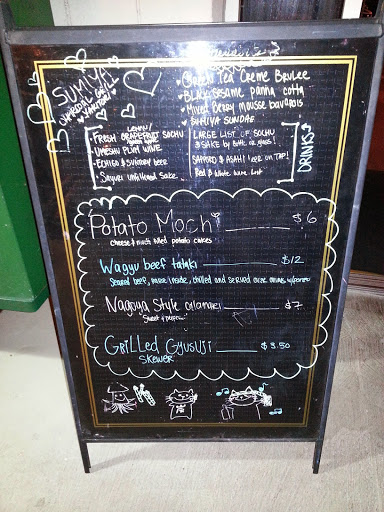 SUMIYA
YAKITORI
Green Tea Creme Brulee
BLACK sesame panna cotta
Mixed Berry mousse bavarois
SUMIYA SUNDAE
LEMON/
FRESH GRAPEFRUIT SOCHU
UMESHU PLUM WINE
ECHIGO & SUNTORY beer
Sayuri unfiltered Sake
LARGE LIST OF SOCHU
& SAKE by BOTTLE OR glass!
SAPPORO & ASAHI beer on TAP!
Red & White wine List
DRINKS
Potato Mochi $6
cheese & mochi filled potato cakes
Wagyu beef tataki $12
Seared beef, rare inside, chilled and served
Nagoya Style calamari $7
Sweet &
GRiLLed Gyusuji $3.50
SKEWER